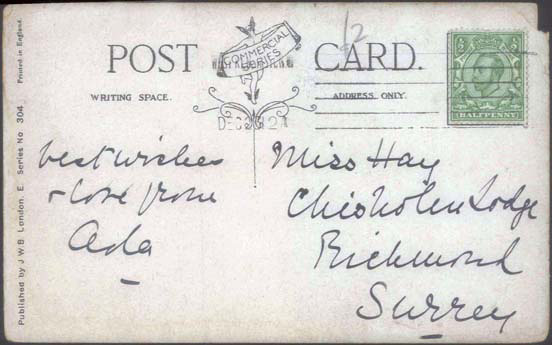 POST CARD.
COMMERCIAL
SERIES
12
HALFPENNY
WRITING SPACE.
ADDRESS ONLY.
best wishes
& love from
Ada
Miss Hay
Chisholm Lodge
Richmond
Surrey
Published by J W B London, E Series No 304 Printed in England.